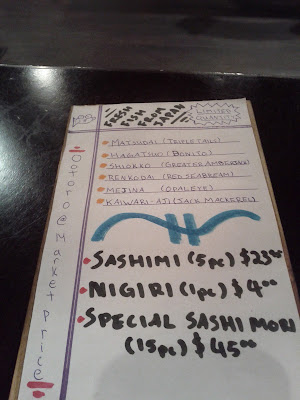 FRESH
FISH
FROM
JAPAN
LIMITED
QUANTITY
MATSUDAI (TRIPLETAIL)
HAGATSUO (BONITO)
SHIOKKO (GREATER AMBERJACK)
RENKODAI (RED SEABREAM)
MEJINA (OPALEYE)
KAIWARI-AJI (JACK MACKEREL)
SASHIMI (5pc) $23⁰⁰
NIGIRI (1pc) $4⁰⁰
SPECIAL SASHI MORI
(15pc) $45⁰⁰
Ootoro @ Market Price